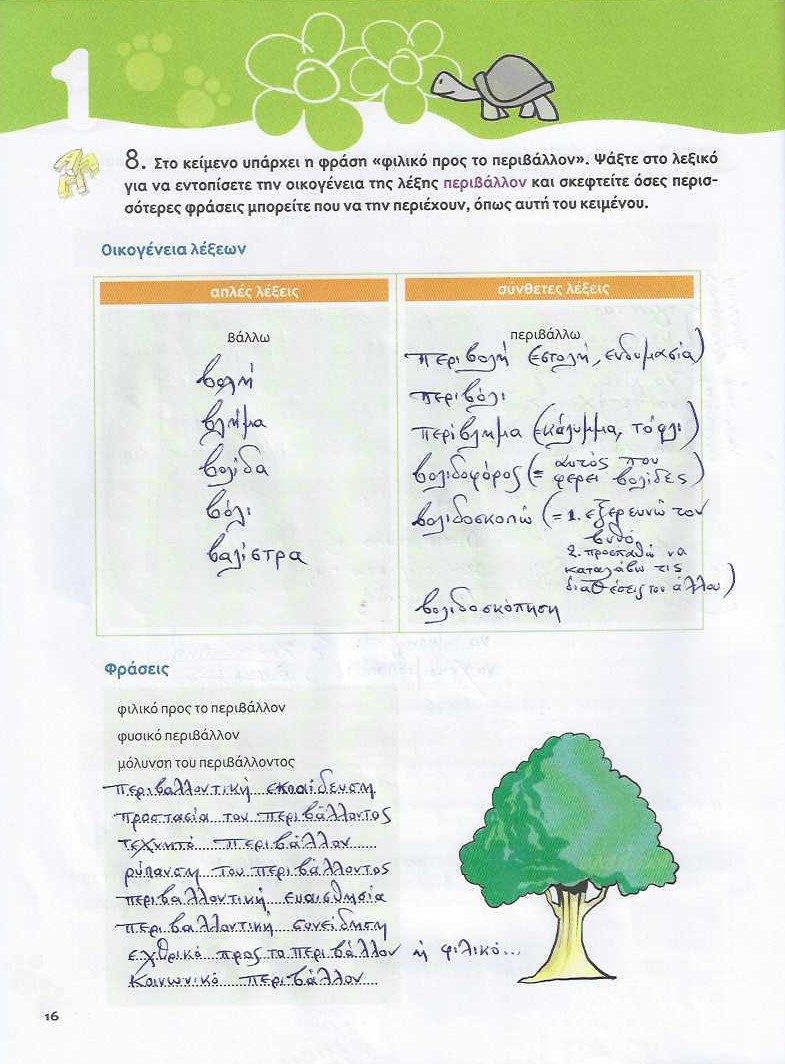 1
8. Στο κείμενο υπάρχει η φράση «φιλικό προς το περιβάλλον». Ψάξτε στο λεξικό
για να εντοπίσετε την οικογένεια της λέξης περιβάλλον και σκεφτείτε όσες περισ-
σότερες φράσεις μπορείτε που να την περιέχουν, όπως αυτή του κειμένου.
Οικογένεια λέξεων
απλές λέξεις
βάλλω
βολή
βλήμα
βολίδα
βόλι
βαλίστρα
σύνθετες λέξεις
περιβάλλω
περιβολή (στολή, ενδυμασία)
περιβόλι
περίβλημα (κάλυμμα, τόφλι)
βολιδοφόρος (= αυτός που
φέρει βολίδες)
βολιδοσκοπώ (= 1. εξερευνώ τον
βυθό
2. προσπαθώ να
καταλάβω τις
διαθέσεις του άλλου)
βολιδοσκόπηση
Φράσεις
φιλικό προς το περιβάλλον
φυσικό περιβάλλον
μόλυνση του περιβάλλοντος
περιβαλλοντική εκπαίδευση
προστασία του περιβάλλοντος
τεχνητό περιβάλλον
ρύπανση του περιβάλλοντος
περιβαλλοντική ευαισθησία
περιβαλλοντική συνείδηση
εχθρικό προς το περιβάλλον ή φιλικό...
κοινωνικό περιβάλλον
16